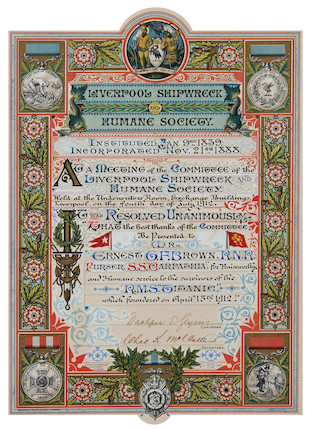 LIVERPOOL SHIPWRECK
AND
HUMANE SOCIETY.
INSTITUTED JAN. 9TH 1839.
INCORPORATED NOV. 21ST 1888.
AT A MEETING of the COMMITTEE of the
LIVERPOOL SHIPWRECK AND
HUMANE SOCIETY.
Held at the Underwriters' Room, Exchange Buildings,
Liverpool, on the Fourth day of 1912.
IT WAS RESOLVED UNANIMOUSLY,
THAT the best thanks of the Committee
Be Presented to
MR.
ERNEST G. F. BROWN, R.N.R.
PURSER, S.S. CARPATHIA, for
and Humane service to the survivors of the
R.M.S. TITANIC,
which foundered on April 15TH 1912.
CHAIRMAN.
Chas
SECRETARY.